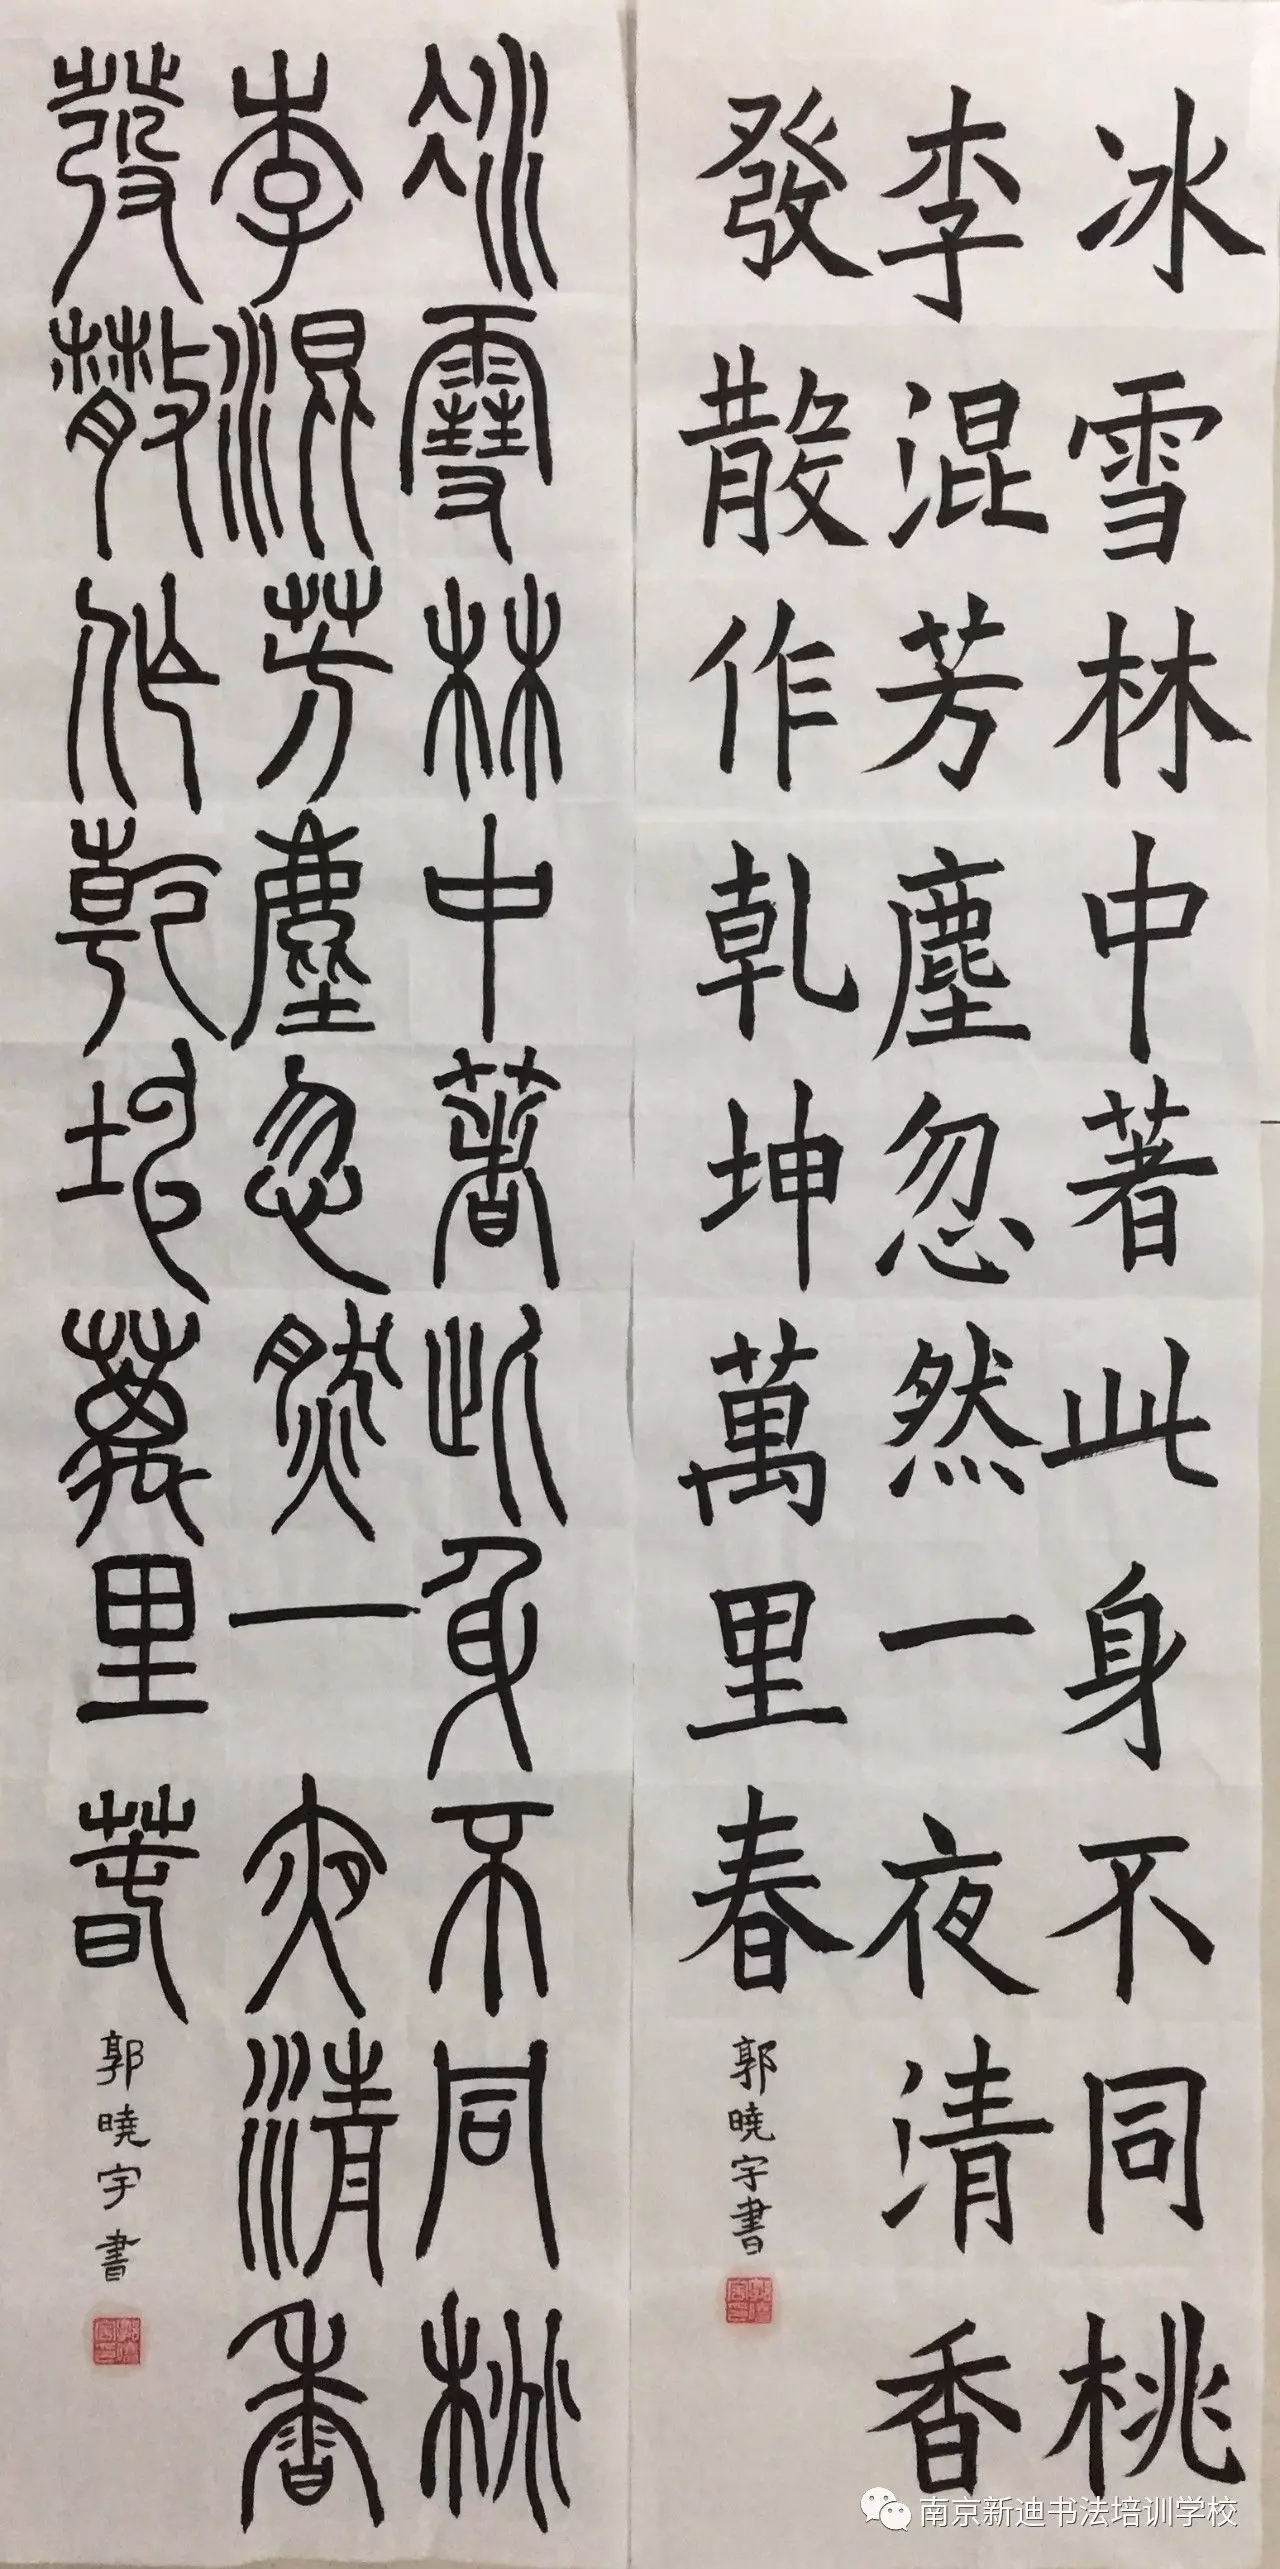 冰雪林中著此身不同桃
李混芳塵忽然一夜清香
發散作乾坤萬里春
郭曉宇書
冰雪林中著此身不同桃
李混芳塵忽然一夜清香
發散作乾坤萬里春
郭曉宇書
南京新迪书法培训学校